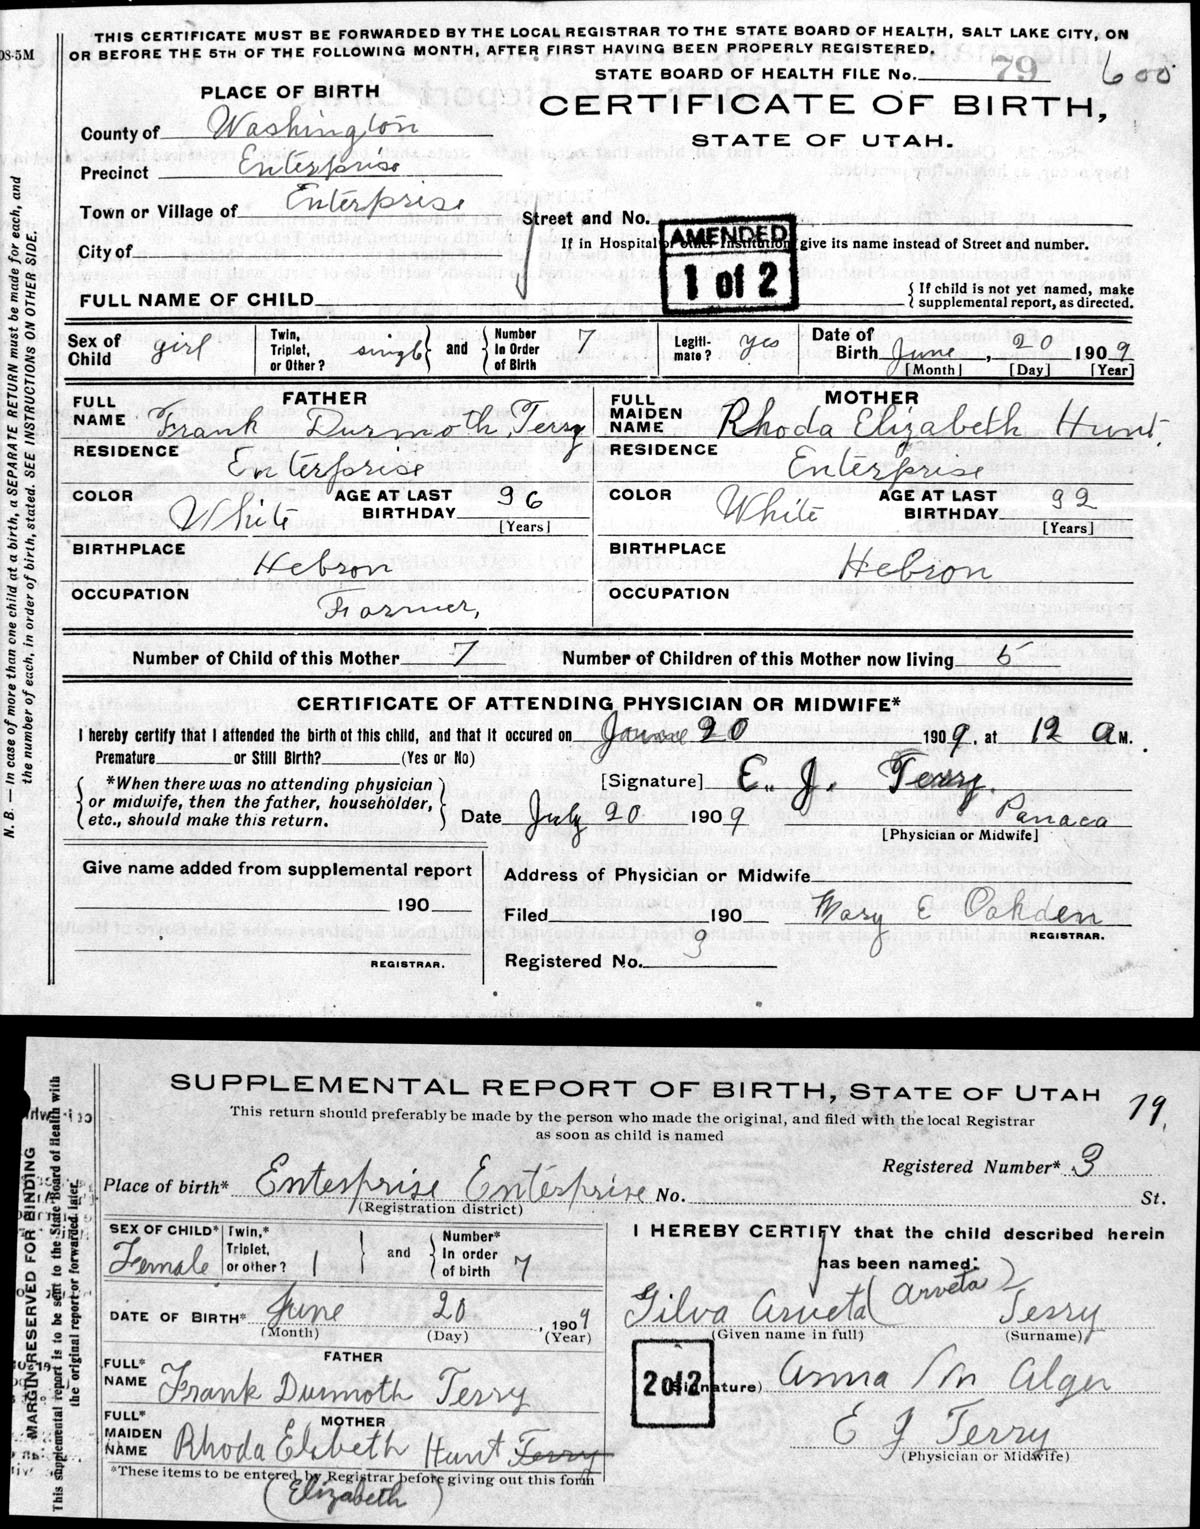 THIS CERTIFICATE MUST BE FORWARDED BY THE LOCAL REGISTRAR TO THE STATE BOARD OF HEALTH, SALT LAKE CITY, ON
OR BEFORE THE 5TH OF THE FOLLOWING MONTH, AFTER FIRST HAVING BEEN PROPERLY REGISTERED.
08-5M
STATE BOARD OF HEALTH FILE No. 79 600
PLACE OF BIRTH
CERTIFICATE OF BIRTH,
STATE OF UTAH.
County of Washington
Precinct Enterprise
Town or Village of Enterprise
Street and No.
City of
If in Hospital or other Institution give its name instead of Street and number.
AMENDED
1 of 2
FULL NAME OF CHILD
{ If child is not yet named, make
supplemental report, as directed.
Sex of Child girl
Twin, Triplet, or Other? single } and { Number In Order of Birth 7
Legitimate? yes
Date of Birth June, 20 1909
[Month] [Day] [Year]
FATHER
FULL NAME Frank Durmoth Terry
MOTHER
FULL MAIDEN NAME Rhoda Elizabeth Hunt.
RESIDENCE Enterprise
RESIDENCE Enterprise
COLOR White AGE AT LAST BIRTHDAY 36 [Years]
COLOR White AGE AT LAST BIRTHDAY 32 [Years]
BIRTHPLACE Hebron
BIRTHPLACE Hebron
OCCUPATION Farmer,
OCCUPATION
Number of Child of this Mother 7 Number of Children of this Mother now living 5
CERTIFICATE OF ATTENDING PHYSICIAN OR MIDWIFE*
I hereby certify that I attended the birth of this child, and that it occured on June 20 1909, at 12 A M.
Premature or Still Birth? (Yes or No)
[Signature] E. J. Terry.
{ *When there was no attending physician
or midwife, then the father, householder,
etc., should make this return. }
Date July 20 1909 Panaca
[Physician or Midwife]
Give name added from supplemental report
190
REGISTRAR.
Address of Physician or Midwife
Filed 190 Mary E Oakden
REGISTRAR.
Registered No. 3
N. B. — In case of more than one child at a birth, a SEPARATE RETURN must be made for each, and
the number of each, in order of birth, stated. SEE INSTRUCTIONS ON OTHER SIDE.
SUPPLEMENTAL REPORT OF BIRTH, STATE OF UTAH
79.
This return should preferably be made by the person who made the original, and filed with the local Registrar
as soon as child is named
Registered Number* 3
Place of birth* Enterprise Enterprise No. St.
(Registration district)
SEX OF CHILD* Female
Twin,* Triplet, or other? 1 } and { Number* In order of birth 7
I HEREBY CERTIFY that the child described herein
has been named:
DATE OF BIRTH* June 20, 1909
(Month) (Day) (Year)
Gilva Arveta (Arveta) Terry
(Given name in full) (Surname)
FATHER
FULL* NAME Frank Durmoth Terry
2 of 2
(Signature) Anna M Alger
MOTHER
FULL* MAIDEN NAME Rhoda Elsbeth Hunt Terry
(Elizabeth)
E J Terry
(Physician or Midwife)
*These items to be entered by Registrar before giving out this form
MARGIN RESERVED FOR BINDING
This supplemental report is to be sent to the State Board of Health with
the original report or forwarded later.